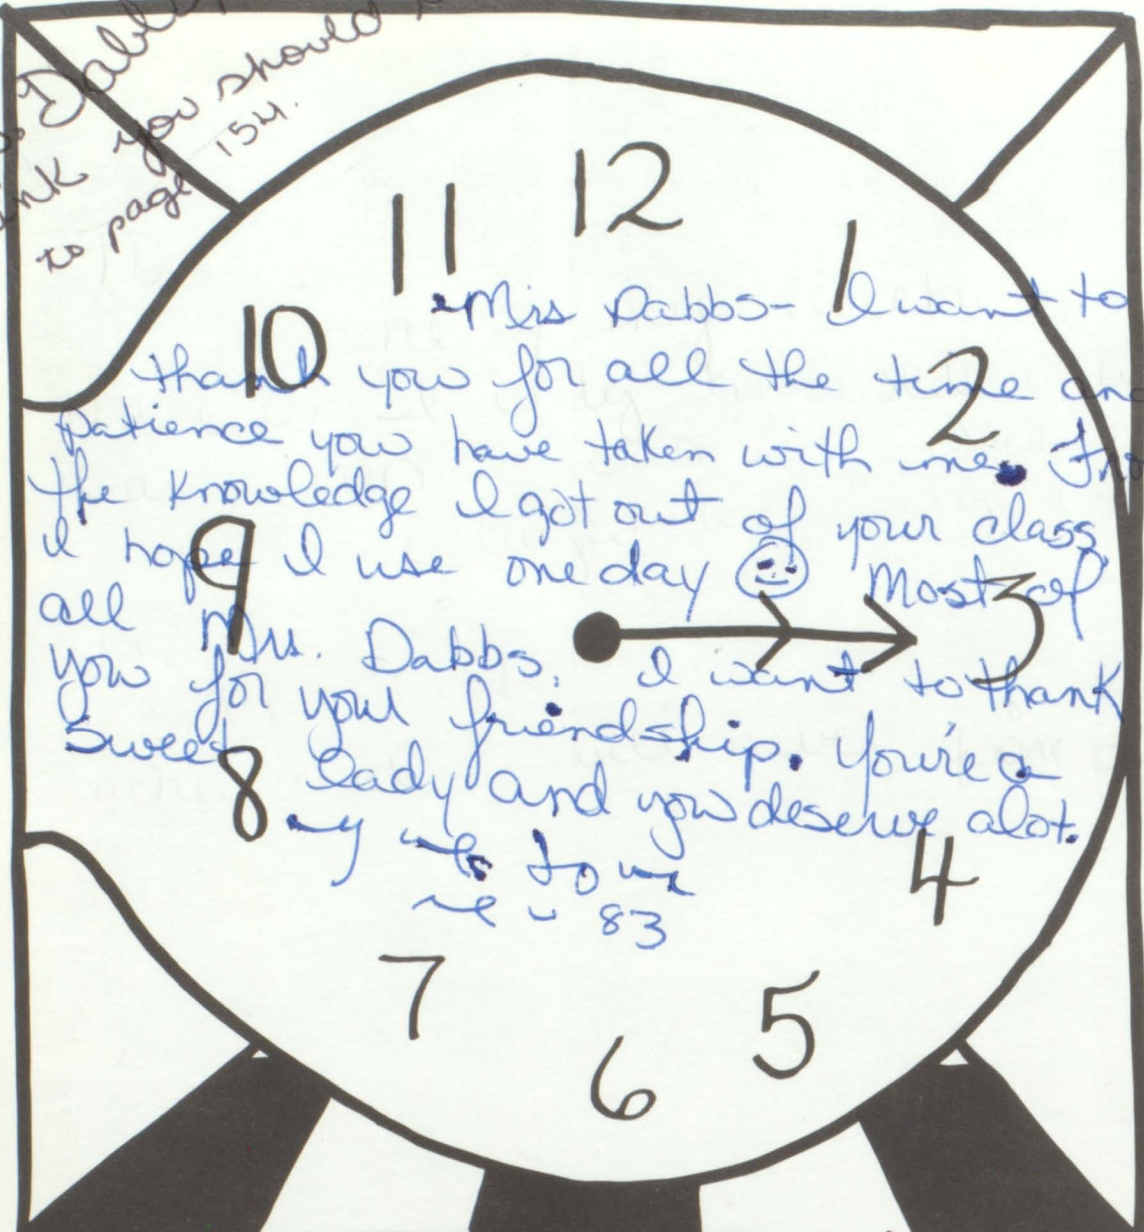 Dabbs,
you should
to page 154.
12
11
1
Mrs Dabbs- I want to
10
thank you for all the time and
2
patience you have taken with me.
the knowledge I got out of your class
I hope I use one day Most of
9
3
all Mrs. Dabbs, I want to thank
you for your friendship. You're a
sweet lady and you deserve alot.
8
4
83
7
5
6